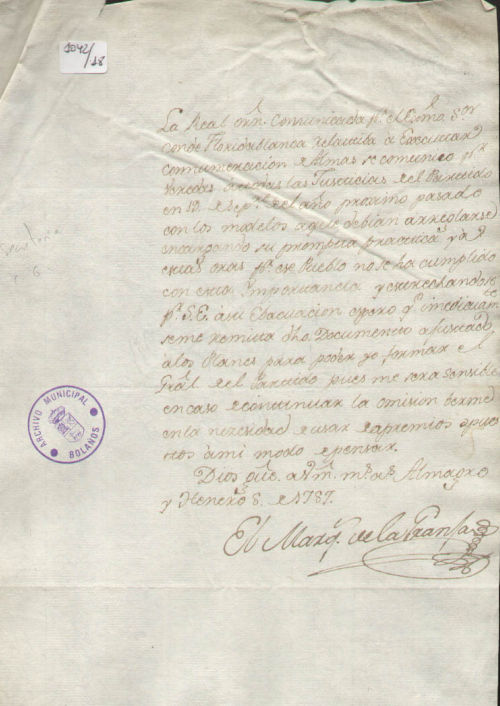 1042/18
La Real orn. Comunicada pr. el Exmo. Sor.
Conde Floridablanca relativa a Executar
Comnumeracion de Almas se comunico pr.
Veredas a todas las Justicias del Partido
en 12 de Sepre. del año proximo pasado
con los modelos a que debian arreglarse
encargando su prompta practica; y a
estas oras pr. ese Pueblo no se ha cumplido
con esta Importancia y estrechandose
pr. S.E. a su Evacuacion espero qe. imediatamte.
se me remita dho. Documento ajustado
a los Planes para poder yo formar el
Gral. del Partido pues me sera sensible
en caso de continuar la omision berme
en la nezesidad de usar de apremios opues
tos a mi modo de pensar.
Dios gue. a Vm. ms. as. Almagro
y Henero 8. de 1787.
El Marqs. de la Granja
ARCHIVO MUNICIPAL
BOLAÑOS